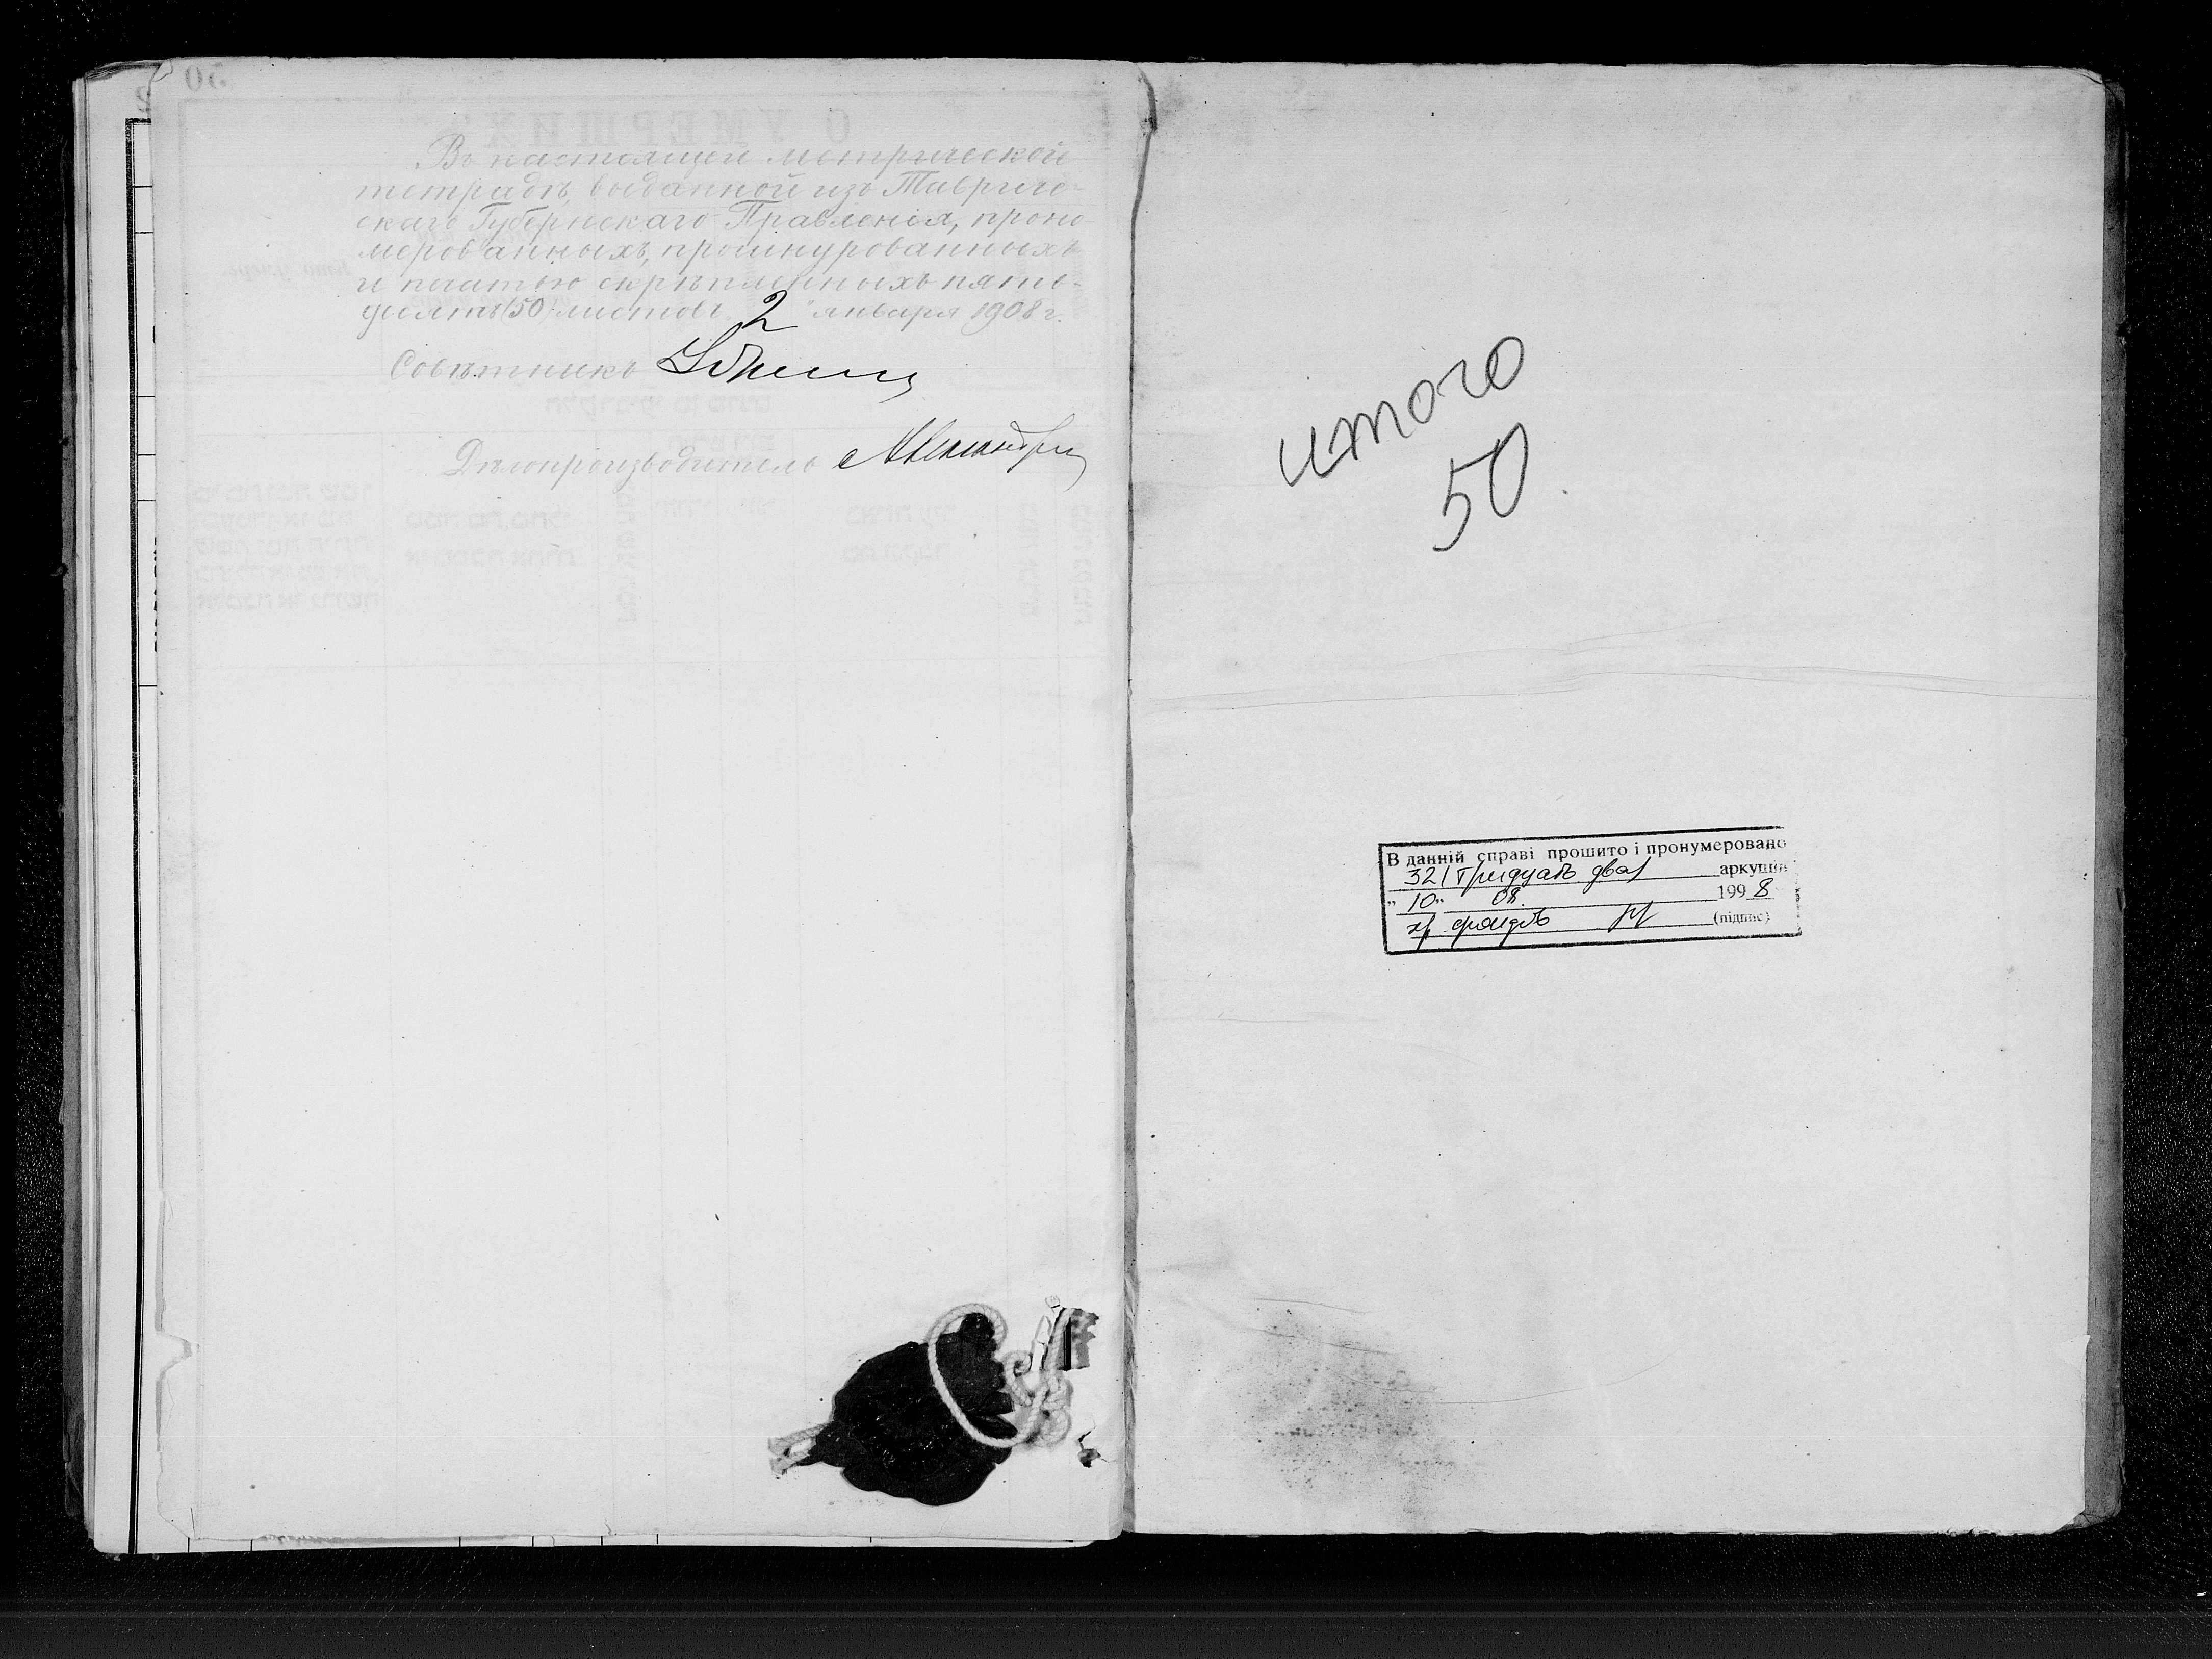 Въ настоящей метрической
тетрадѣ, выданной изъ Тавриче-
скаго Губернскаго Правленія, прону-
мерованныхъ, прошнурованныхъ
и печатью скрѣпленныхъ пять-
десятъ (50) листовъ. 2 января 1908 г.
Совѣтникъ
Дѣлопроизводитель
итого
50
В данній справі прошито і пронумеровано
32 (тридцать два) аркушів
„10" 08 1998
хр. фондів (підпис)